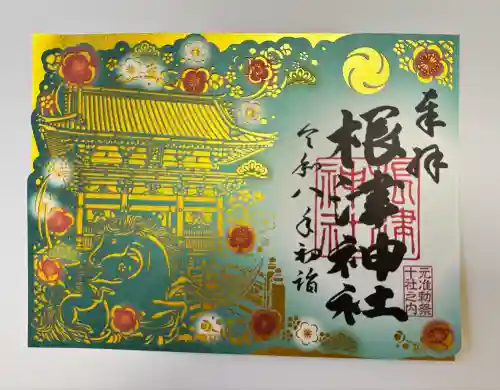 奉拝
根津神社
根津神社
令和八年初詣
元准勅祭
十社之内